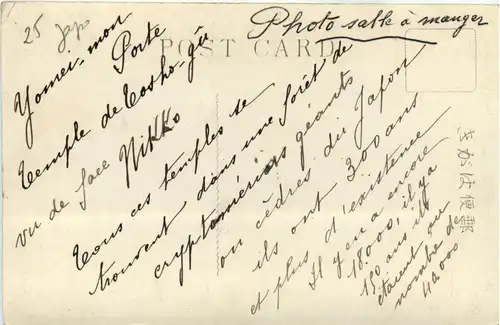 25 Jap
Photo salle à manger
POST CARD
Yomei-mon
Porte
temple de Tosho-gû
vu de face Nikko
Tous ces temples se
trouvent dans une forêt de
cryptomérias géants
ou cèdres du Japon
ils ont 300 ans
et plus d'existence
Il y en a encore
18000, il y a
150 ans ils
étaient au
nombre de
40000
きがは便郵